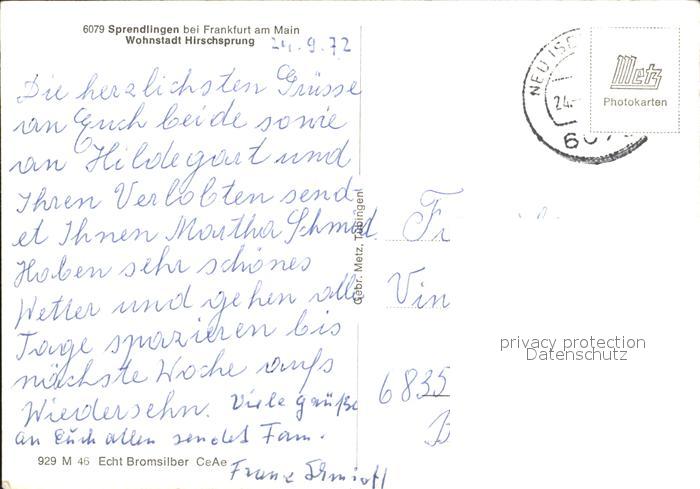 6079 Sprendlingen bei Frankfurt am Main
Wohnstadt Hirschsprung
24.9.72
Die herzlichsten Grüsse
an Euch beide sowie
an Hildegart und
Ihren Verlobten send
et Ihnen Martha Schmid.
Haben sehr schönes
Wetter und gehen alle
Tage spazieren bis
nächste Woche aufs
Wiedersehn. Viele Grüße
an Euch allen sendet Fam.
Franz Schmidt
929 M 46 Echt Bromsilber CeAe
Gebr. Metz, Tübingen
NEU IS
24.-
607
Metz
Photokarten
Fr
Vin
6835
B
privacy protection
Datenschutz